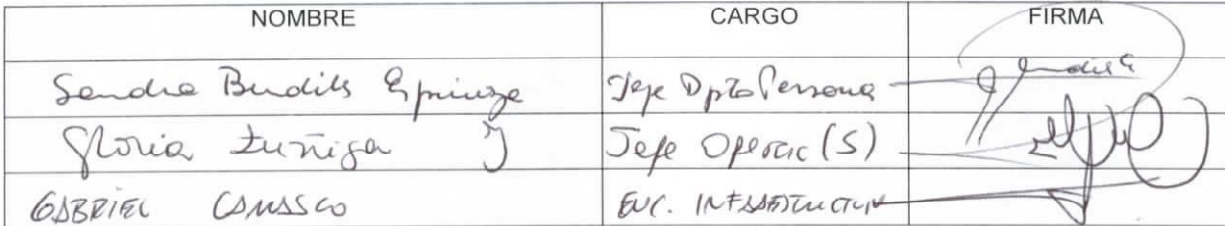 NOMBRE CARGO FIRMA
Sandra Budils Espinoza Jefe Dpto Persona
Gloria Zuñiga J Jefe Operac (S)
GABRIEL CARRASCO ENC. INFRAESTRUCTURA